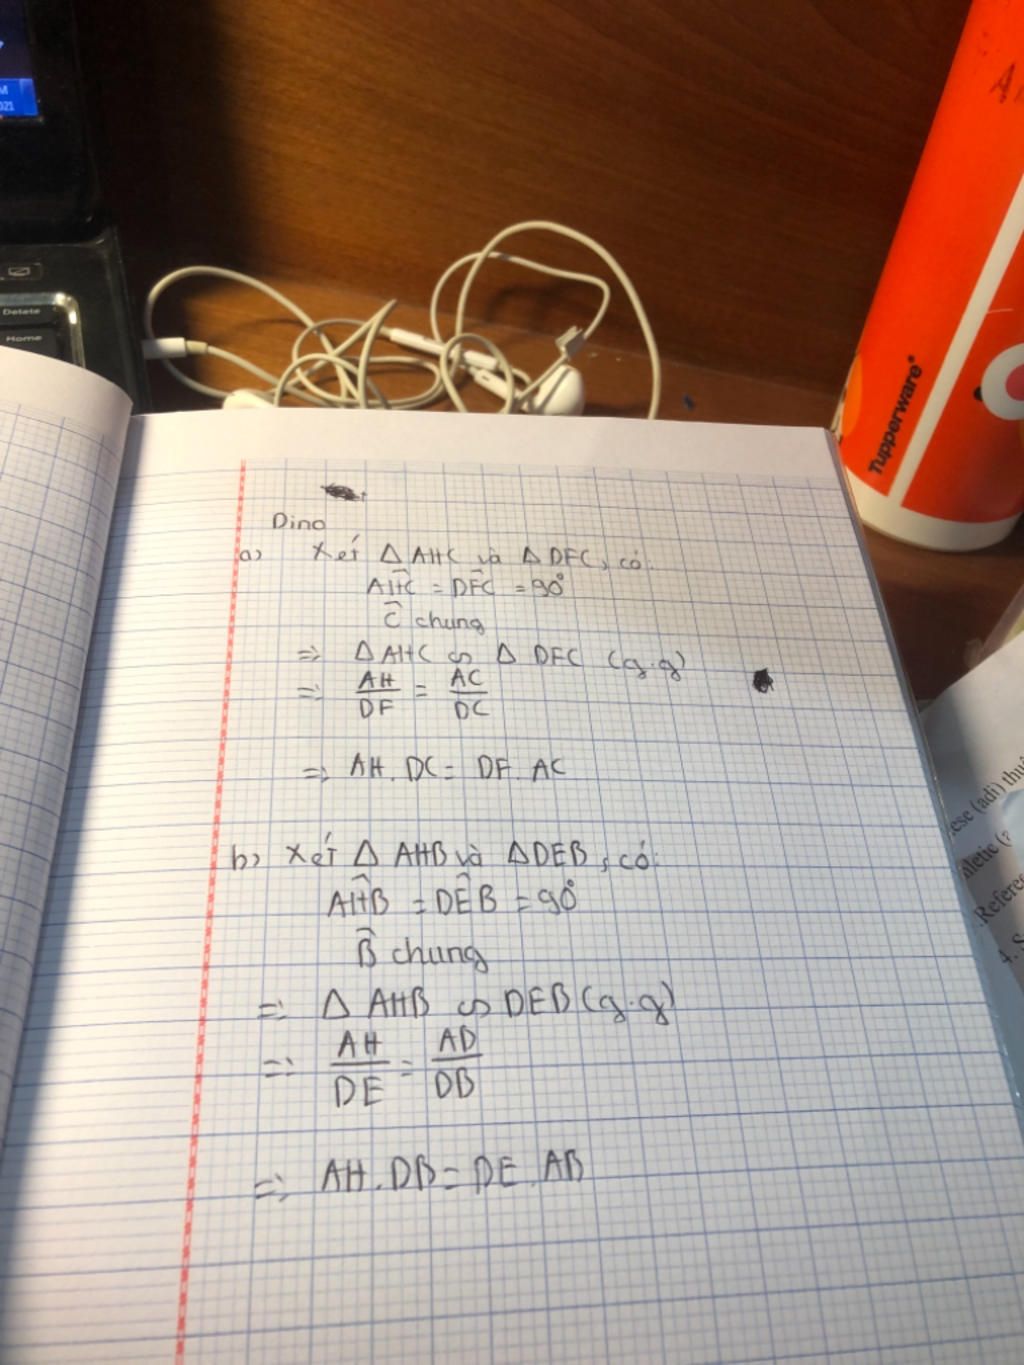 M
021
Delete
Home
A
Tupperware®
Dino
a) Xét Δ AHC và Δ DFC, có:
AHC = DFC = 90°
C chung
=> Δ AHC ∽ Δ DFC (g.g)
=> AH/DF = AC/DC
=> AH.DC = DF.AC
b) Xét Δ AHB và Δ DEB, có:
AHB = DEB = 90°
B chung
=> Δ AHB ∽ DEB (g.g)
=> AH/DE = AD/DB
=> AH.DB = DE.AB
(adi)
4. S